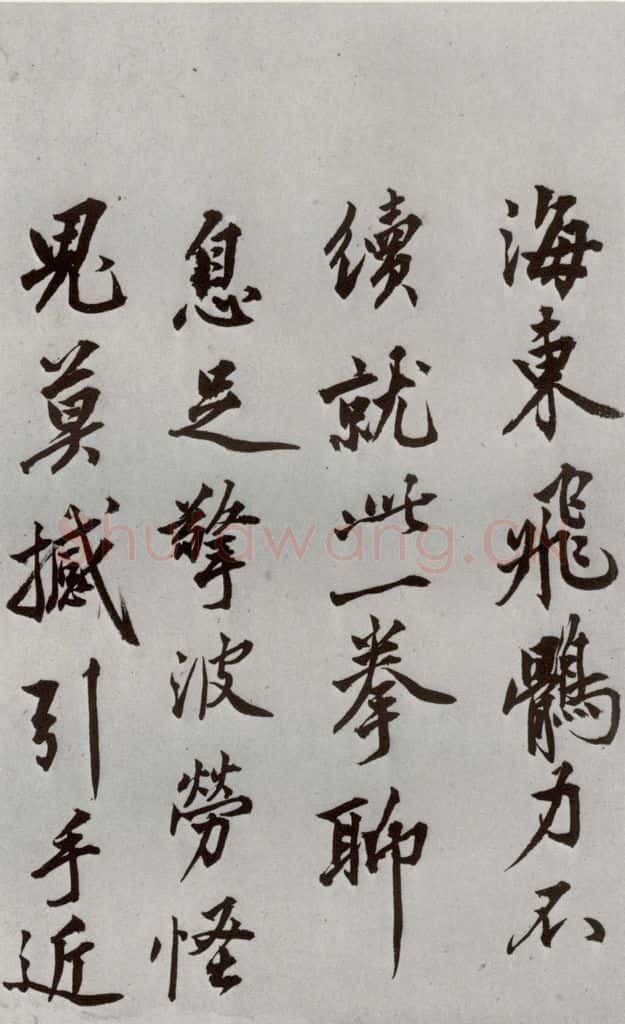 海東飛鶻力不
續就此一拳聊
息足擎波勞怪
鬼莫撼引手近
shufawang.cn